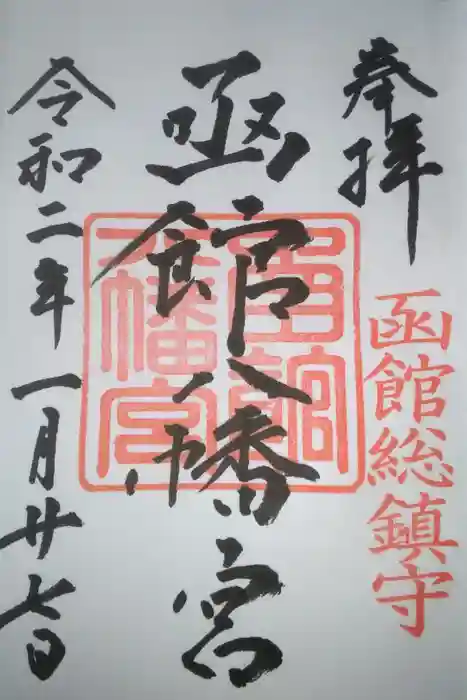 奉拝
函館総鎮守
函館八幡宮
函館八幡宮
令和二年一月廿七日